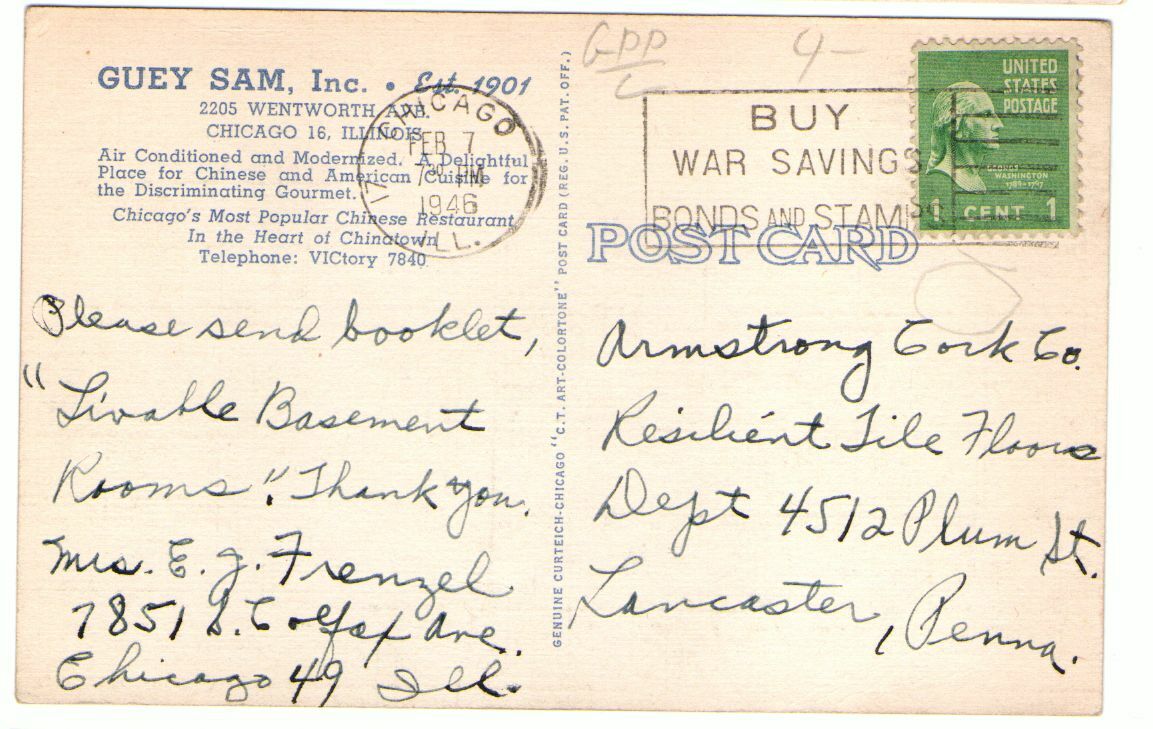 GUEY SAM, Inc. • Est. 1901
2205 WENTWORTH AVE.
CHICAGO 16, ILLINOIS
Air Conditioned and Modernized. A Delightful
Place for Chinese and American Cuisine for
the Discriminating Gourmet.
Chicago's Most Popular Chinese Restaurant
In the Heart of Chinatown
Telephone: VICtory 7840
CHICAGO
17
FEB 7
7 30 PM
1946
ILL.
Please send booklet,
"Livable Basement
Rooms". Thank you.
Mrs. E. J. Frenzel
7851 S. Colfax Ave.
Chicago 49 Ill.
GENUINE CURTEICH-CHICAGO "C.T. ART-COLORTONE" POST CARD (REG. U.S. PAT. OFF.)
GPP
C
4-
BUY
WAR SAVINGS
BONDS AND STAMPS
UNITED
STATES
POSTAGE
GEORGE
WASHINGTON
1789-1797
1 CENT 1
POST CARD
Armstrong Cork Co.
Resilient Tile Floors
Dept 4512 Plum St.
Lancaster, Penna.